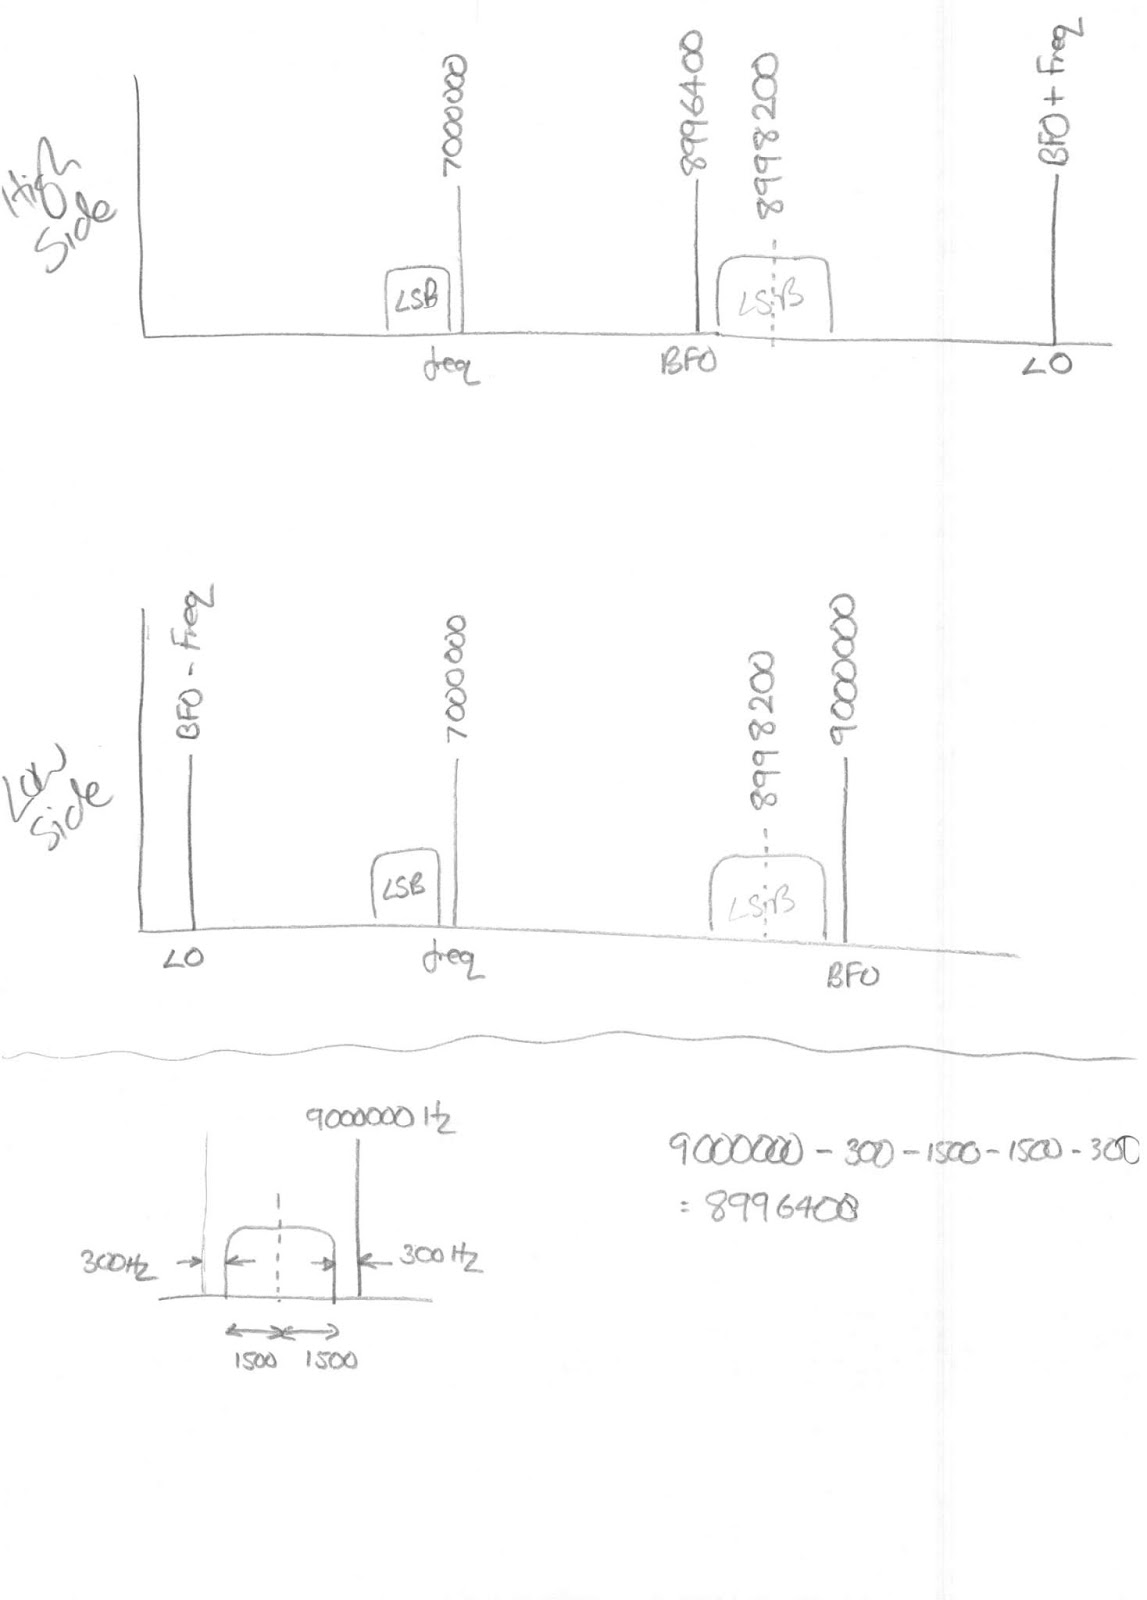 High
Side
7000000
8996400
8998200
BFO + Freq
LSB
LSB
freq
BFO
LO
Low
Side
BFO - Freq
7000000
8998200
9000000
LSB
LSB
LO
freq
BFO
9000000 Hz
300Hz
300Hz
1500 1500
9000000 - 300 - 1500 - 1500 - 300
= 8996400